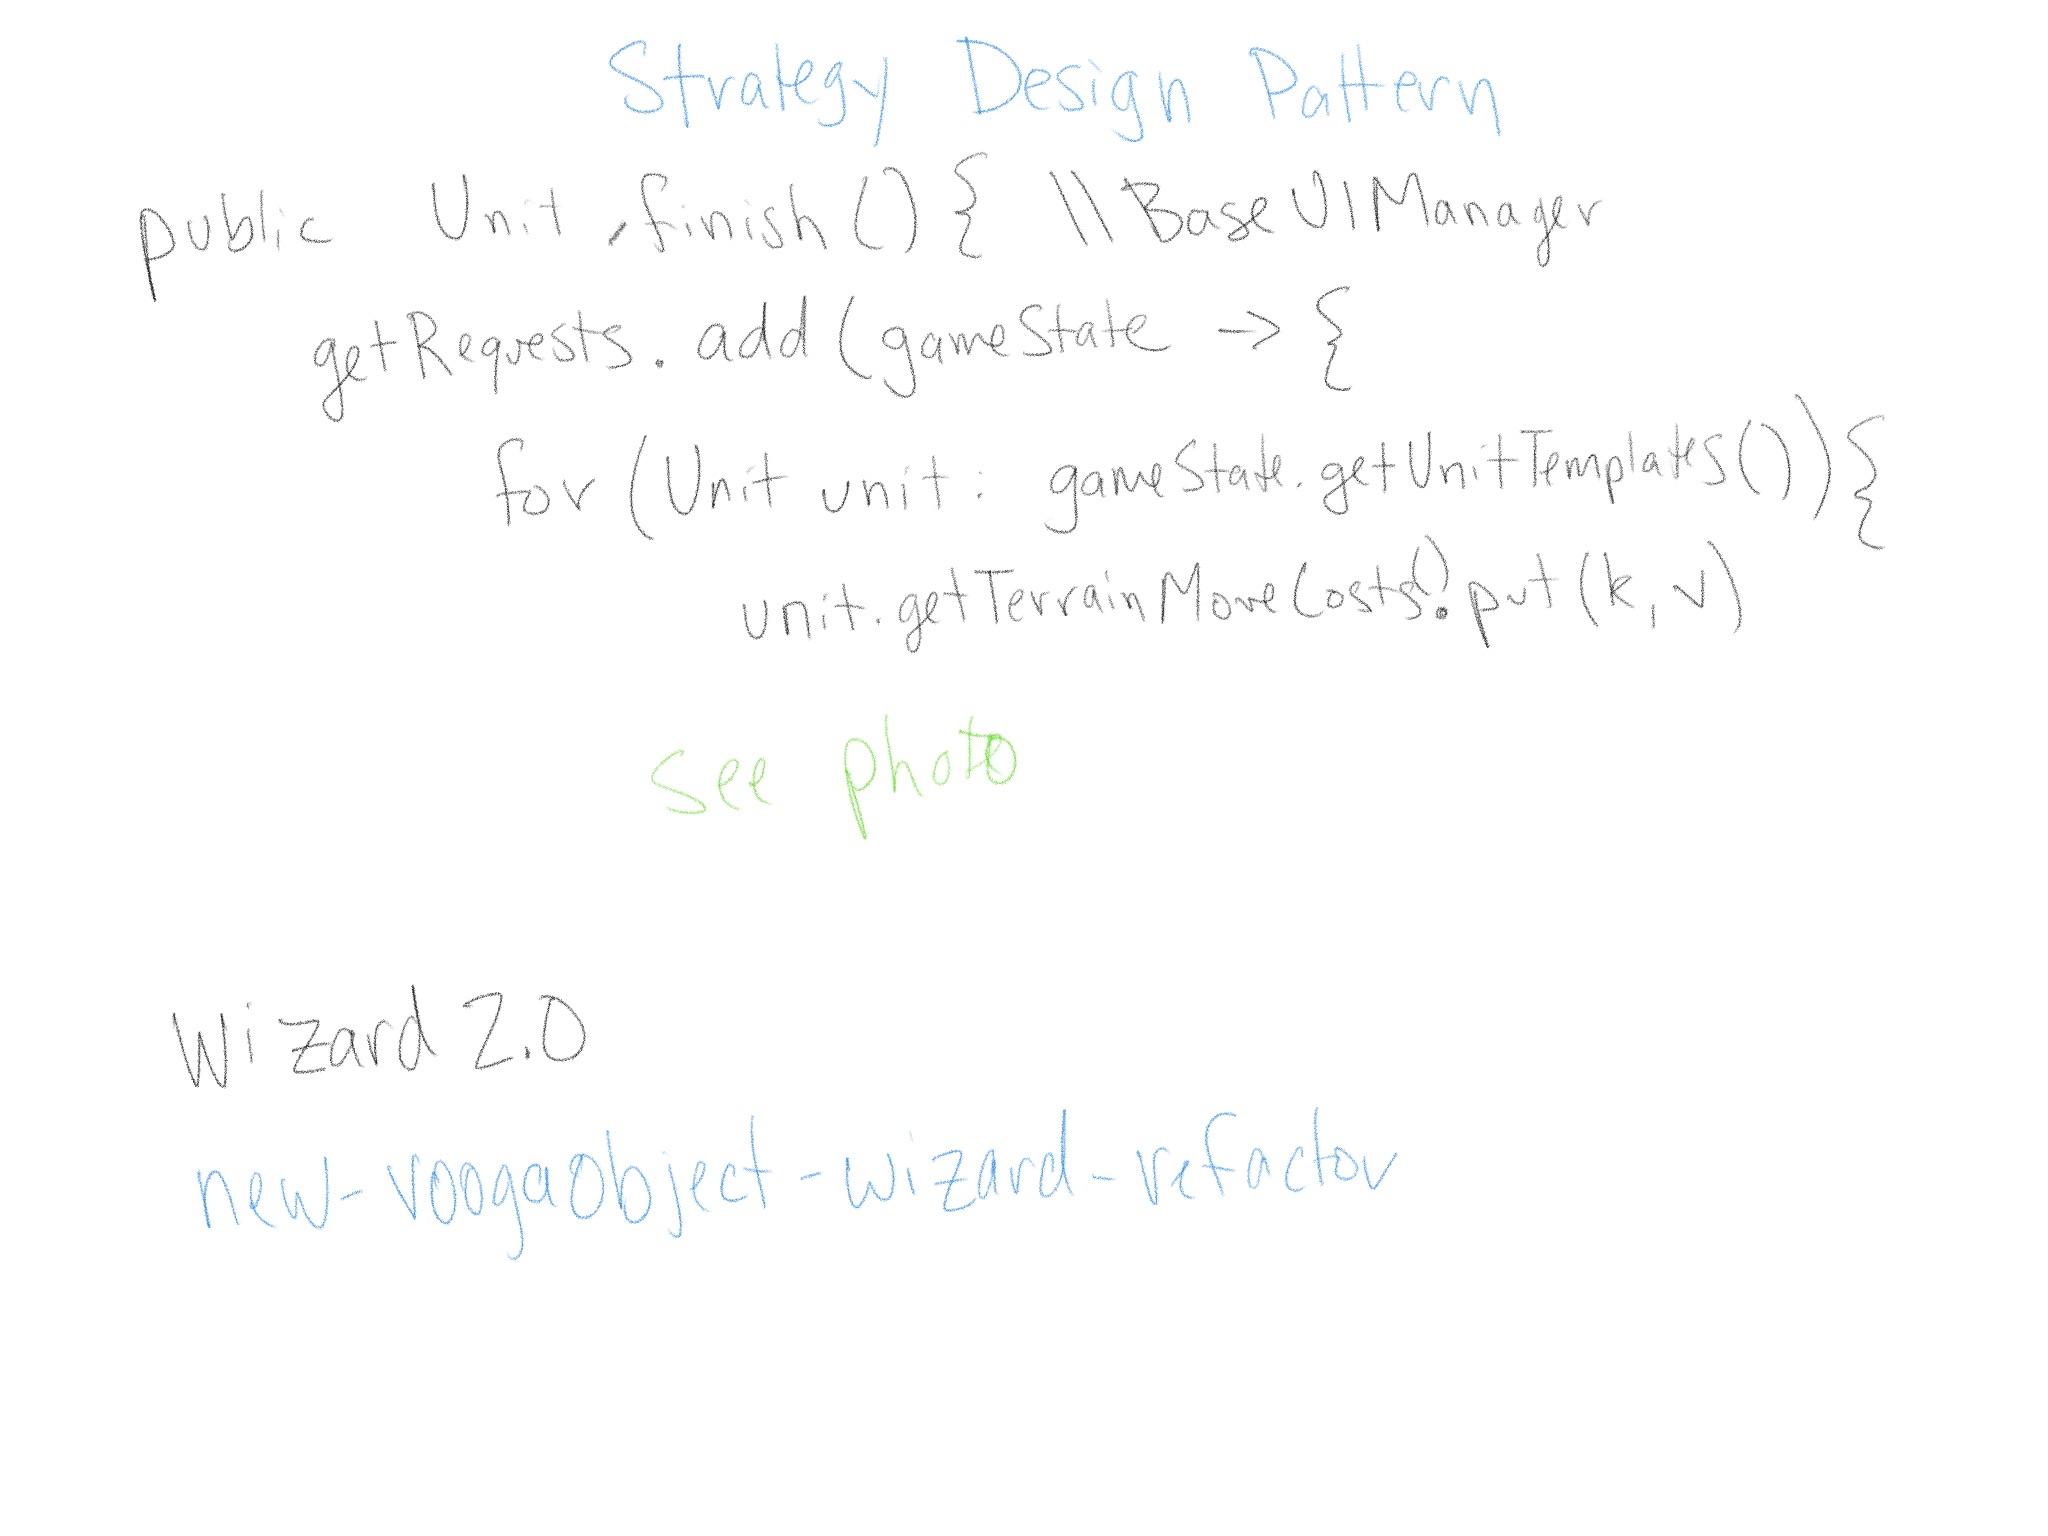 Strategy Design Pattern
public Unit finish() { \\BaseUIManager
getRequests.add(gameState -> {
for (Unit unit: gameState.getUnitTemplates()) {
unit.getTerrainMoveCosts().put(k, v)
see photo
Wizard 2.0
new-voogaObject-wizard-refactor